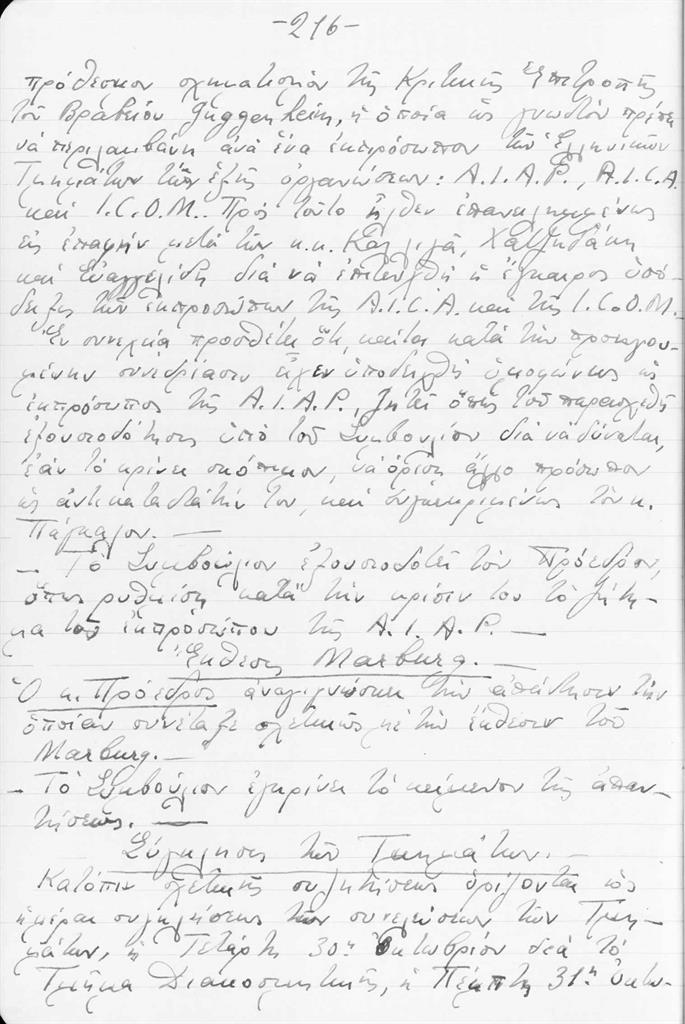 -216-
πρόθεσμον σχηματισμὸν τῆς Κριτικῆς Ἐπιτροπῆς
τοῦ Βραβείου Guggenheim, ἡ ὁποία ὡς γνωστὸν πρέπει
νὰ περιλαμβάνη ἀνὰ ἕνα ἐκπρόσωπον τῶν Ἑλληνικῶν
Τμημάτων τῶν ἑξῆς ὀργανώσεων: A.I.A.P., A.I.C.A.
καὶ I.C.O.M.. Πρὸς τοῦτο ἦλθεν ἐπανειλημμένως
εἰς ἐπαφὴν μετὰ τῶν κ.κ. Καλλιγᾶ, Χατζηδάκη
καὶ Εὐαγγελίδη διὰ νὰ ἐπιτευχθῆ ἡ ἔγκαιρος ὑπό-
δειξις τῶν ἐκπροσώπων τῆς A.I.C.A. καὶ τῆς I.C.O.M.-
Ἐν συνεχείᾳ προσθέτει ὅτι, καίτοι κατὰ τὴν προηγου-
μένην συνεδρίασιν εἶχεν ὑποδειχθῆ ὁμοφώνως ὡς
ἐκπρόσωπος τῆς A.I.A.P., ζητεῖ ὅπως τοῦ παρασχεθῆ
ἐξουσιοδότησις ὑπὸ τοῦ Συμβουλίου διὰ νὰ δύναται,
ἐὰν τὸ κρίνει σκόπιμον, νὰ ὁρίση ἄλλο πρόσωπον
ὡς ἀντικαταστάτην του, καὶ συγκεκριμένως τὸν κ.
Πάγκαλον. —
- Τὸ Συμβούλιον ἐξουσιοδοτεῖ τὸν Πρόεδρον,
ὅπως ρυθμίση κατὰ τὴν κρίσιν του τὸ ζήτη-
μα τοῦ ἐκπροσώπου τῆς A.I.A.P. —
Ἔκθεσις Marburg. —
Ὁ κ. Πρόεδρος ἀναγιγνώσκει τὴν ἀπάντησιν τὴν
ὁποίαν συνέταξε σχετικῶς μὲ τὴν ἔκθεσιν τοῦ
Marburg.—
- Τὸ Συμβούλιον ἐγκρίνει τὸ κείμενον τῆς ἀπαν-
τήσεως. —
Σύγκλησις τῶν Τμημάτων. —
Κατόπιν σχετικῆς συζητήσεως ὁρίζονται ὡς
ἡμέραι συγκλήσεως τῶν συνελεύσεων τῶν Τμη-
μάτων, ἡ Τετάρτη 30η Ὀκτωβρίου διὰ τὸ
Τμῆμα Διακοσμητικῆς, ἡ Πέμπτη 31η Ὀκτω-